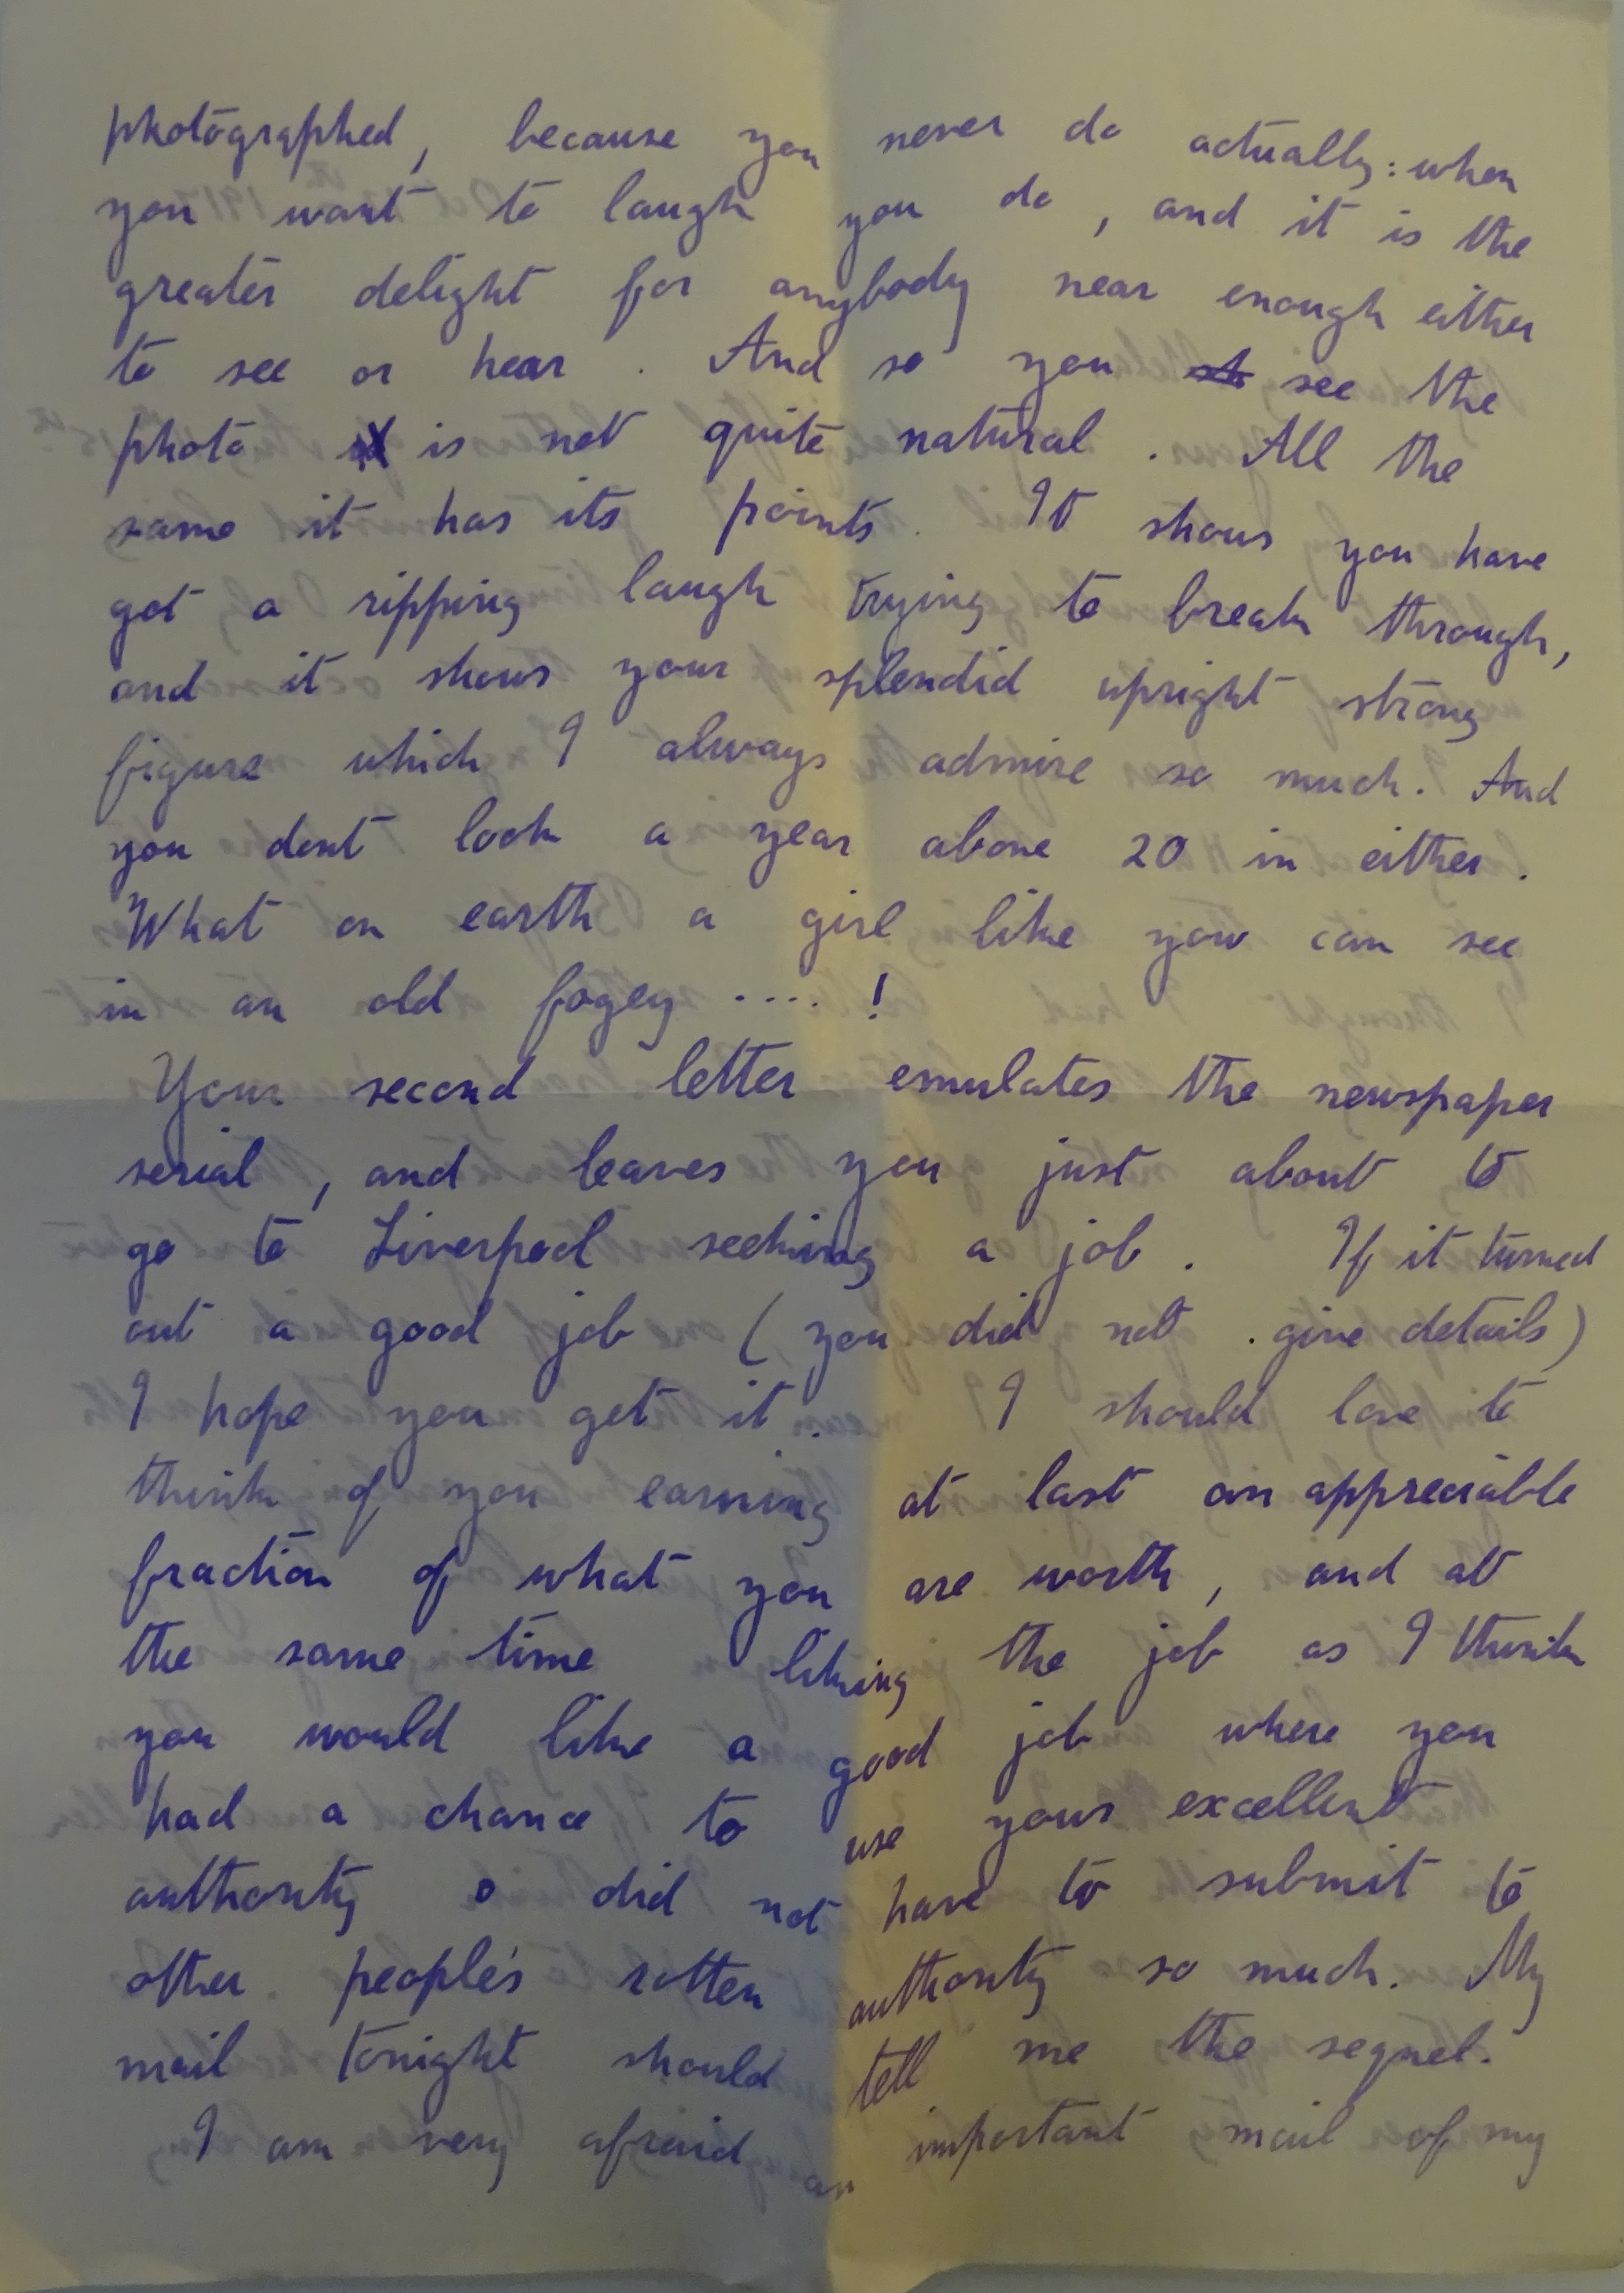 photographed, because you never do actually: when
you want to laugh you do, and it is the
greater delight for anybody near enough either
to see or hear. And so you see the
photo is not quite natural. All the
same it has its points. It shows you have
got a ripping laugh trying to break through,
and it shows your splendid upright strong
figure which I always admire so much. And
you dont look a year above 20 in either.
What on earth a girl like you can see
in an old fogey ....!
Your second letter emulates the newspaper
serial, and leaves you just about to
go to Liverpool seeking a job. If it turned
out a good job (you did not give details)
I hope you get it. I should love to
think of you earning at last an appreciable
fraction of what you are worth, and at
the same time liking the job as I think
you would like a good job where you
had a chance to use your excellent
authority & did not have to submit to
other people's rotten authority so much. My
mail tonight should tell me the sequel.
I am very afraid an important mail of my